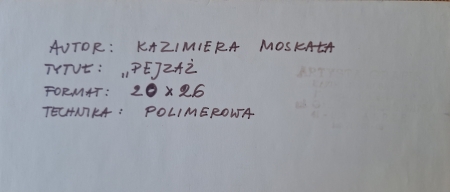 AUTOR: KAZIMIERA MOSKAŁA
TYTUŁ: „PEJZAŻ
FORMAT: 20 x 26
TECHNIKA: POLIMEROWA